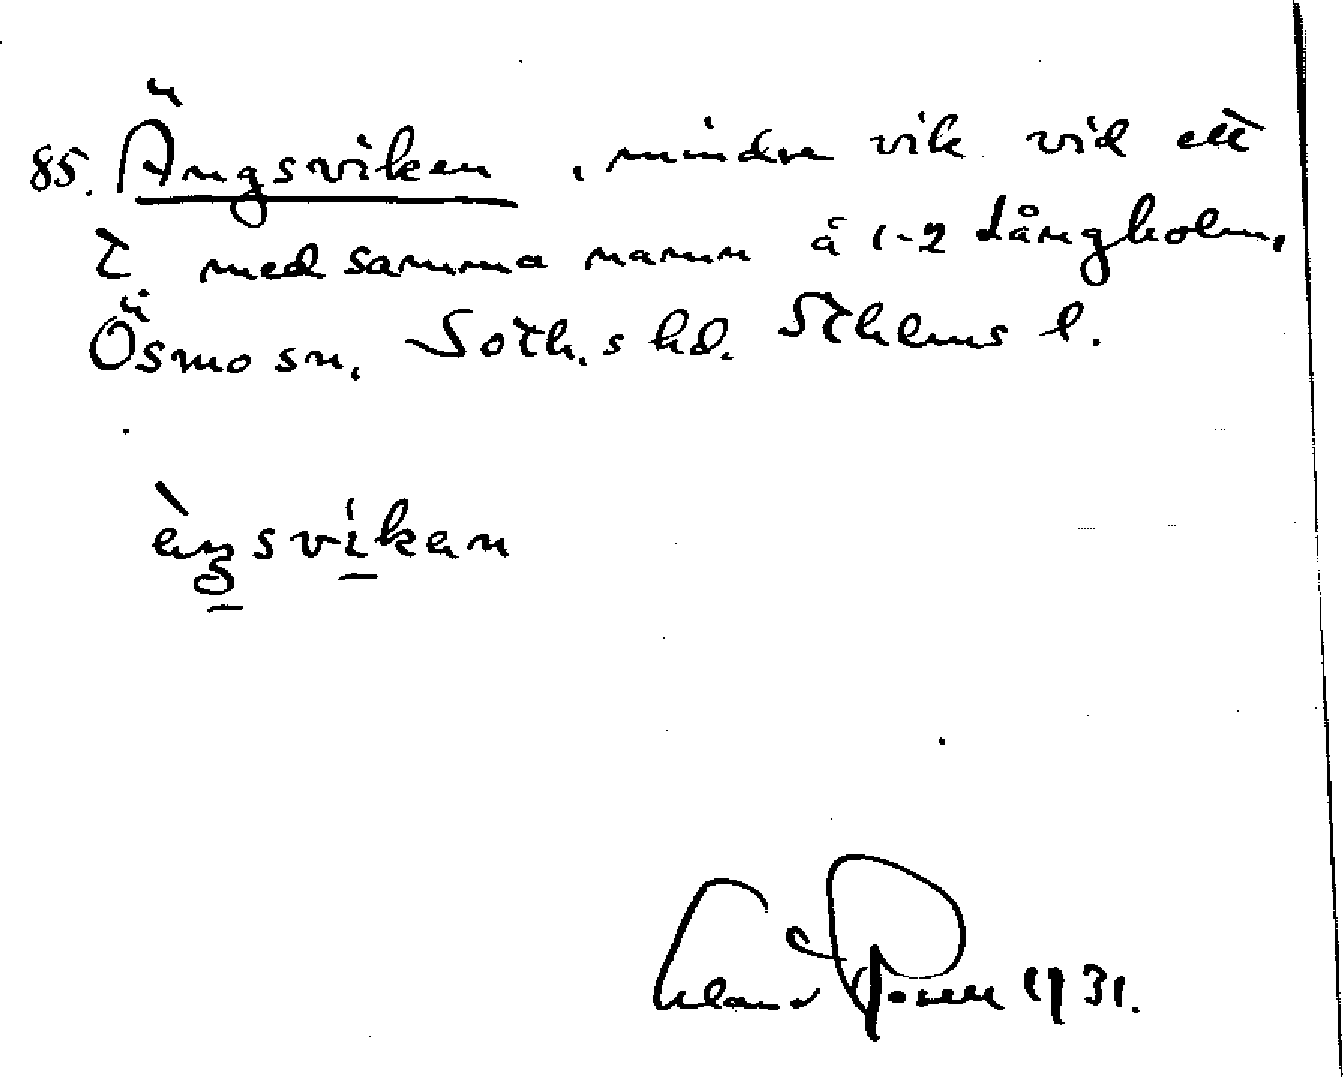 85. Ängsviken, mindre vik vid ett
t med samma namn å 1-2 Långholm,
Ösmo sn, Soth.s hd. Sthlms l.
èŋsvikan
1931.